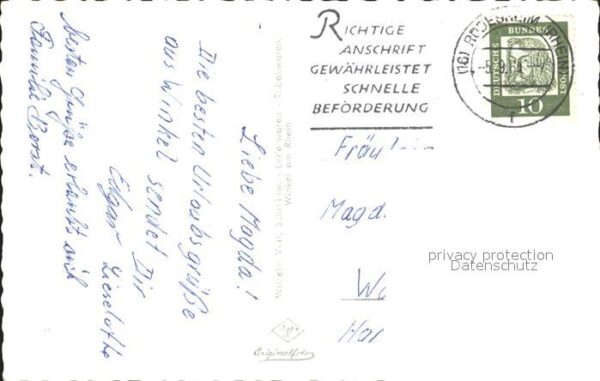 Liebe Magda!
Die besten Urlaubsgrüße
aus Winkel sendet Dir
Edgar Lieselotte
Nesten Grüße erlaubt sich
Familie
Wilhelm Veit, Schreibw., Lederwaren, Tabakwaren,
Winkel am Rhein
Originalfoto
RICHTIGE
ANSCHRIFT
GEWÄHRLEISTET
SCHNELLE
BEFÖRDERUNG
(16) RÜDESHEIM (RHEIN)
DEUTSCHE BUNDESPOST
10
Fräulein
Magd.
privacy protection
Datenschutz